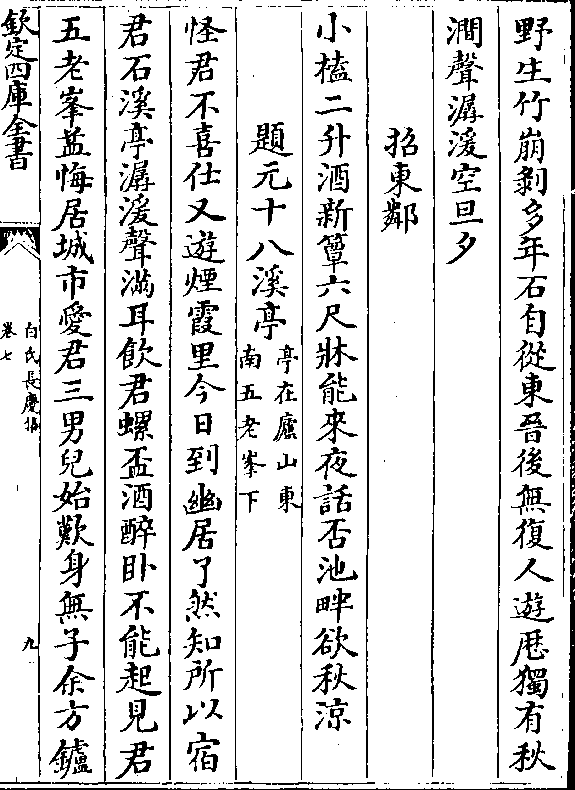 野生竹崩剝多年石自從東晉後無復人遊厯獨有秋
澗聲潺湲空旦夕
招東鄰
小榼二升酒新簟六尺牀能來夜話否池畔欲秋涼
題元十八溪亭
亭在廬山東
南五老峯下
怪君不喜仕又遊煙霞里今日到幽居了然知所以宿
君石溪亭潺湲聲滿耳飲君螺盃酒醉卧不能起見君
五老峯益悔居城市愛君三男兒始歎身無子余方鑪
欽定四庫全書
白氏長慶集
卷七
九